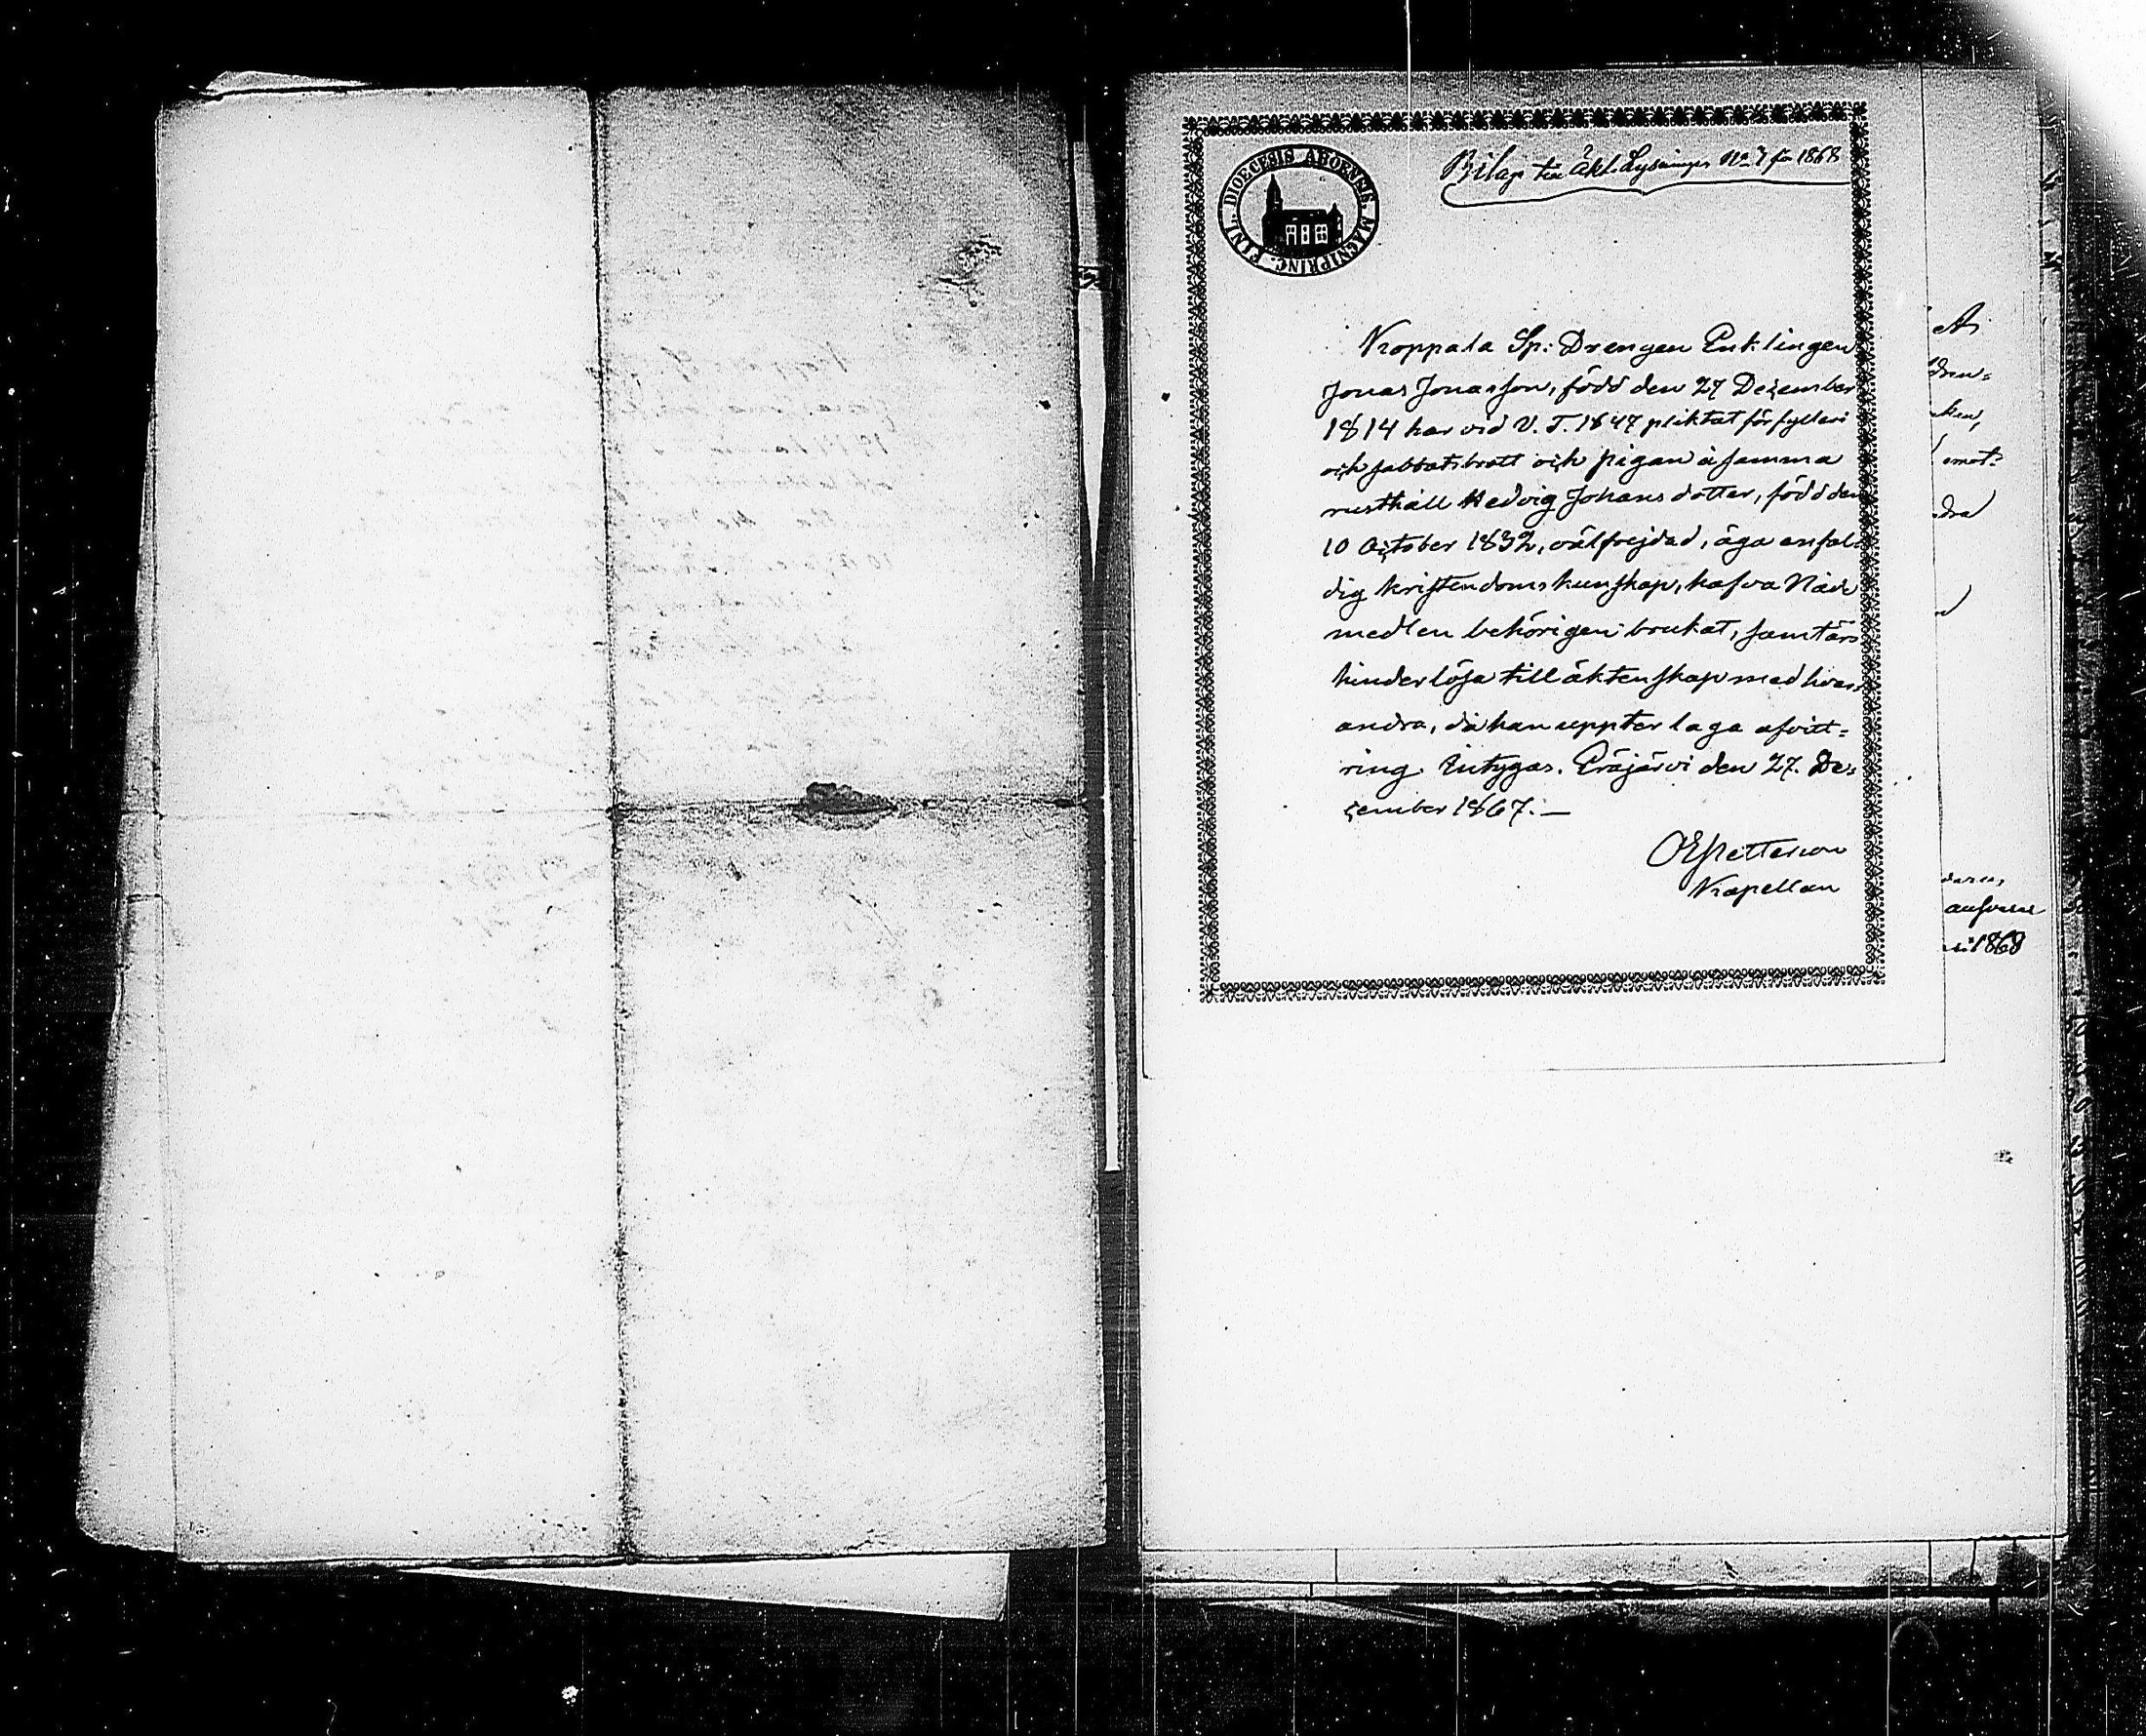 Bilaga till Äkt. Lysningen No 7 för 1868
DIOECESIS ABOENSIS. MAGNI PRINC. FINL.
Koppala Sp: Drengen Enklingen
Jonas Jonasson, född den 27 December
1814 har vid V. T. 1847 pliktat för fylleri
och sabbatsbrott och pigan å samma
rusthåll Hedvig Johansdotter, född den
10 October 1832, välfrejdad, äga enfal-
dig kristendoms kunskap, hafva Nåde
medlen behörigen brukat, samt äro
hinderlösa till äktenskap med hvar-
andra, då han uppter laga afvitt-
ring. Intygas. Eräjärvi den 27. De-
cember 1867. —
Petterson
Kapellan
1868